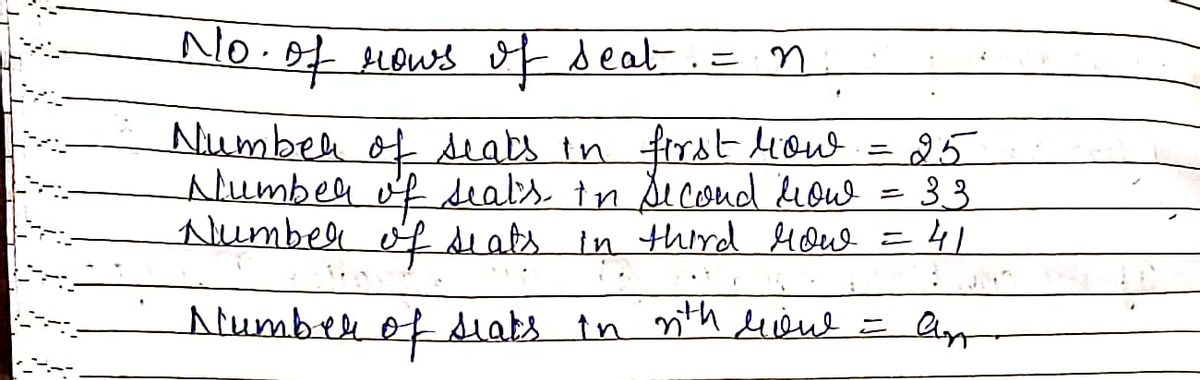 No. of rows of seat . = n
Number of seats in first row = 25
Number of seats in second row = 33
Number of seats in third row = 41
Number of seats in nth row = an.